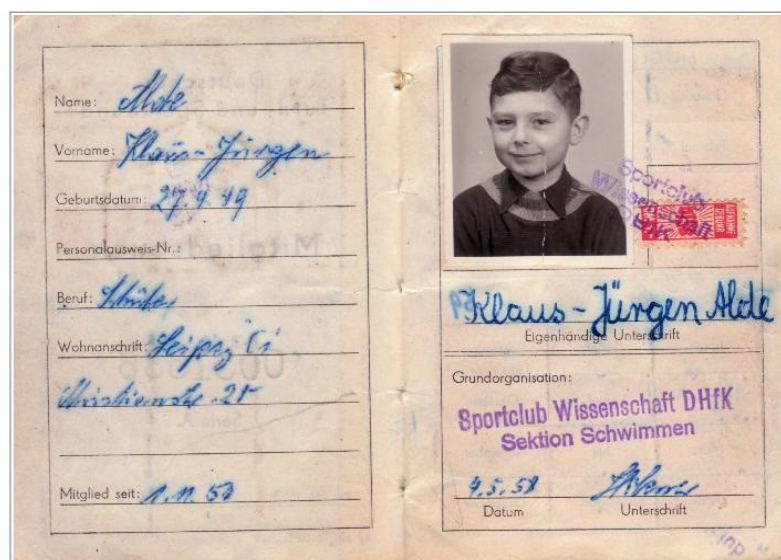 Name: Alde
Vorname: Klaus-Jürgen
Geburtsdatum: 27.4.49
Personalausweis-Nr.:
Beruf: Schüler
Wohnanschrift: Leipzig C1
Christianstr. 25
Mitglied seit: 1.11.57
Sportclub
Wissenschaft
DHfK
AUFNAHME
GEBÜHR
Klaus-Jürgen Alde
Eigenhändige Unterschrift
Grundorganisation:
Sportclub Wissenschaft DHfK
Sektion Schwimmen
9.5.58
Datum Unterschrift